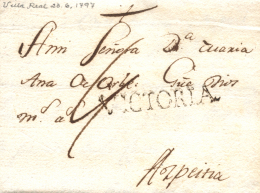 Villa Real 20.6.1797
A mi Señora Dª Maria
Ana de Que Dios
mˢ aˢ
VICTORIA
Azpeitia